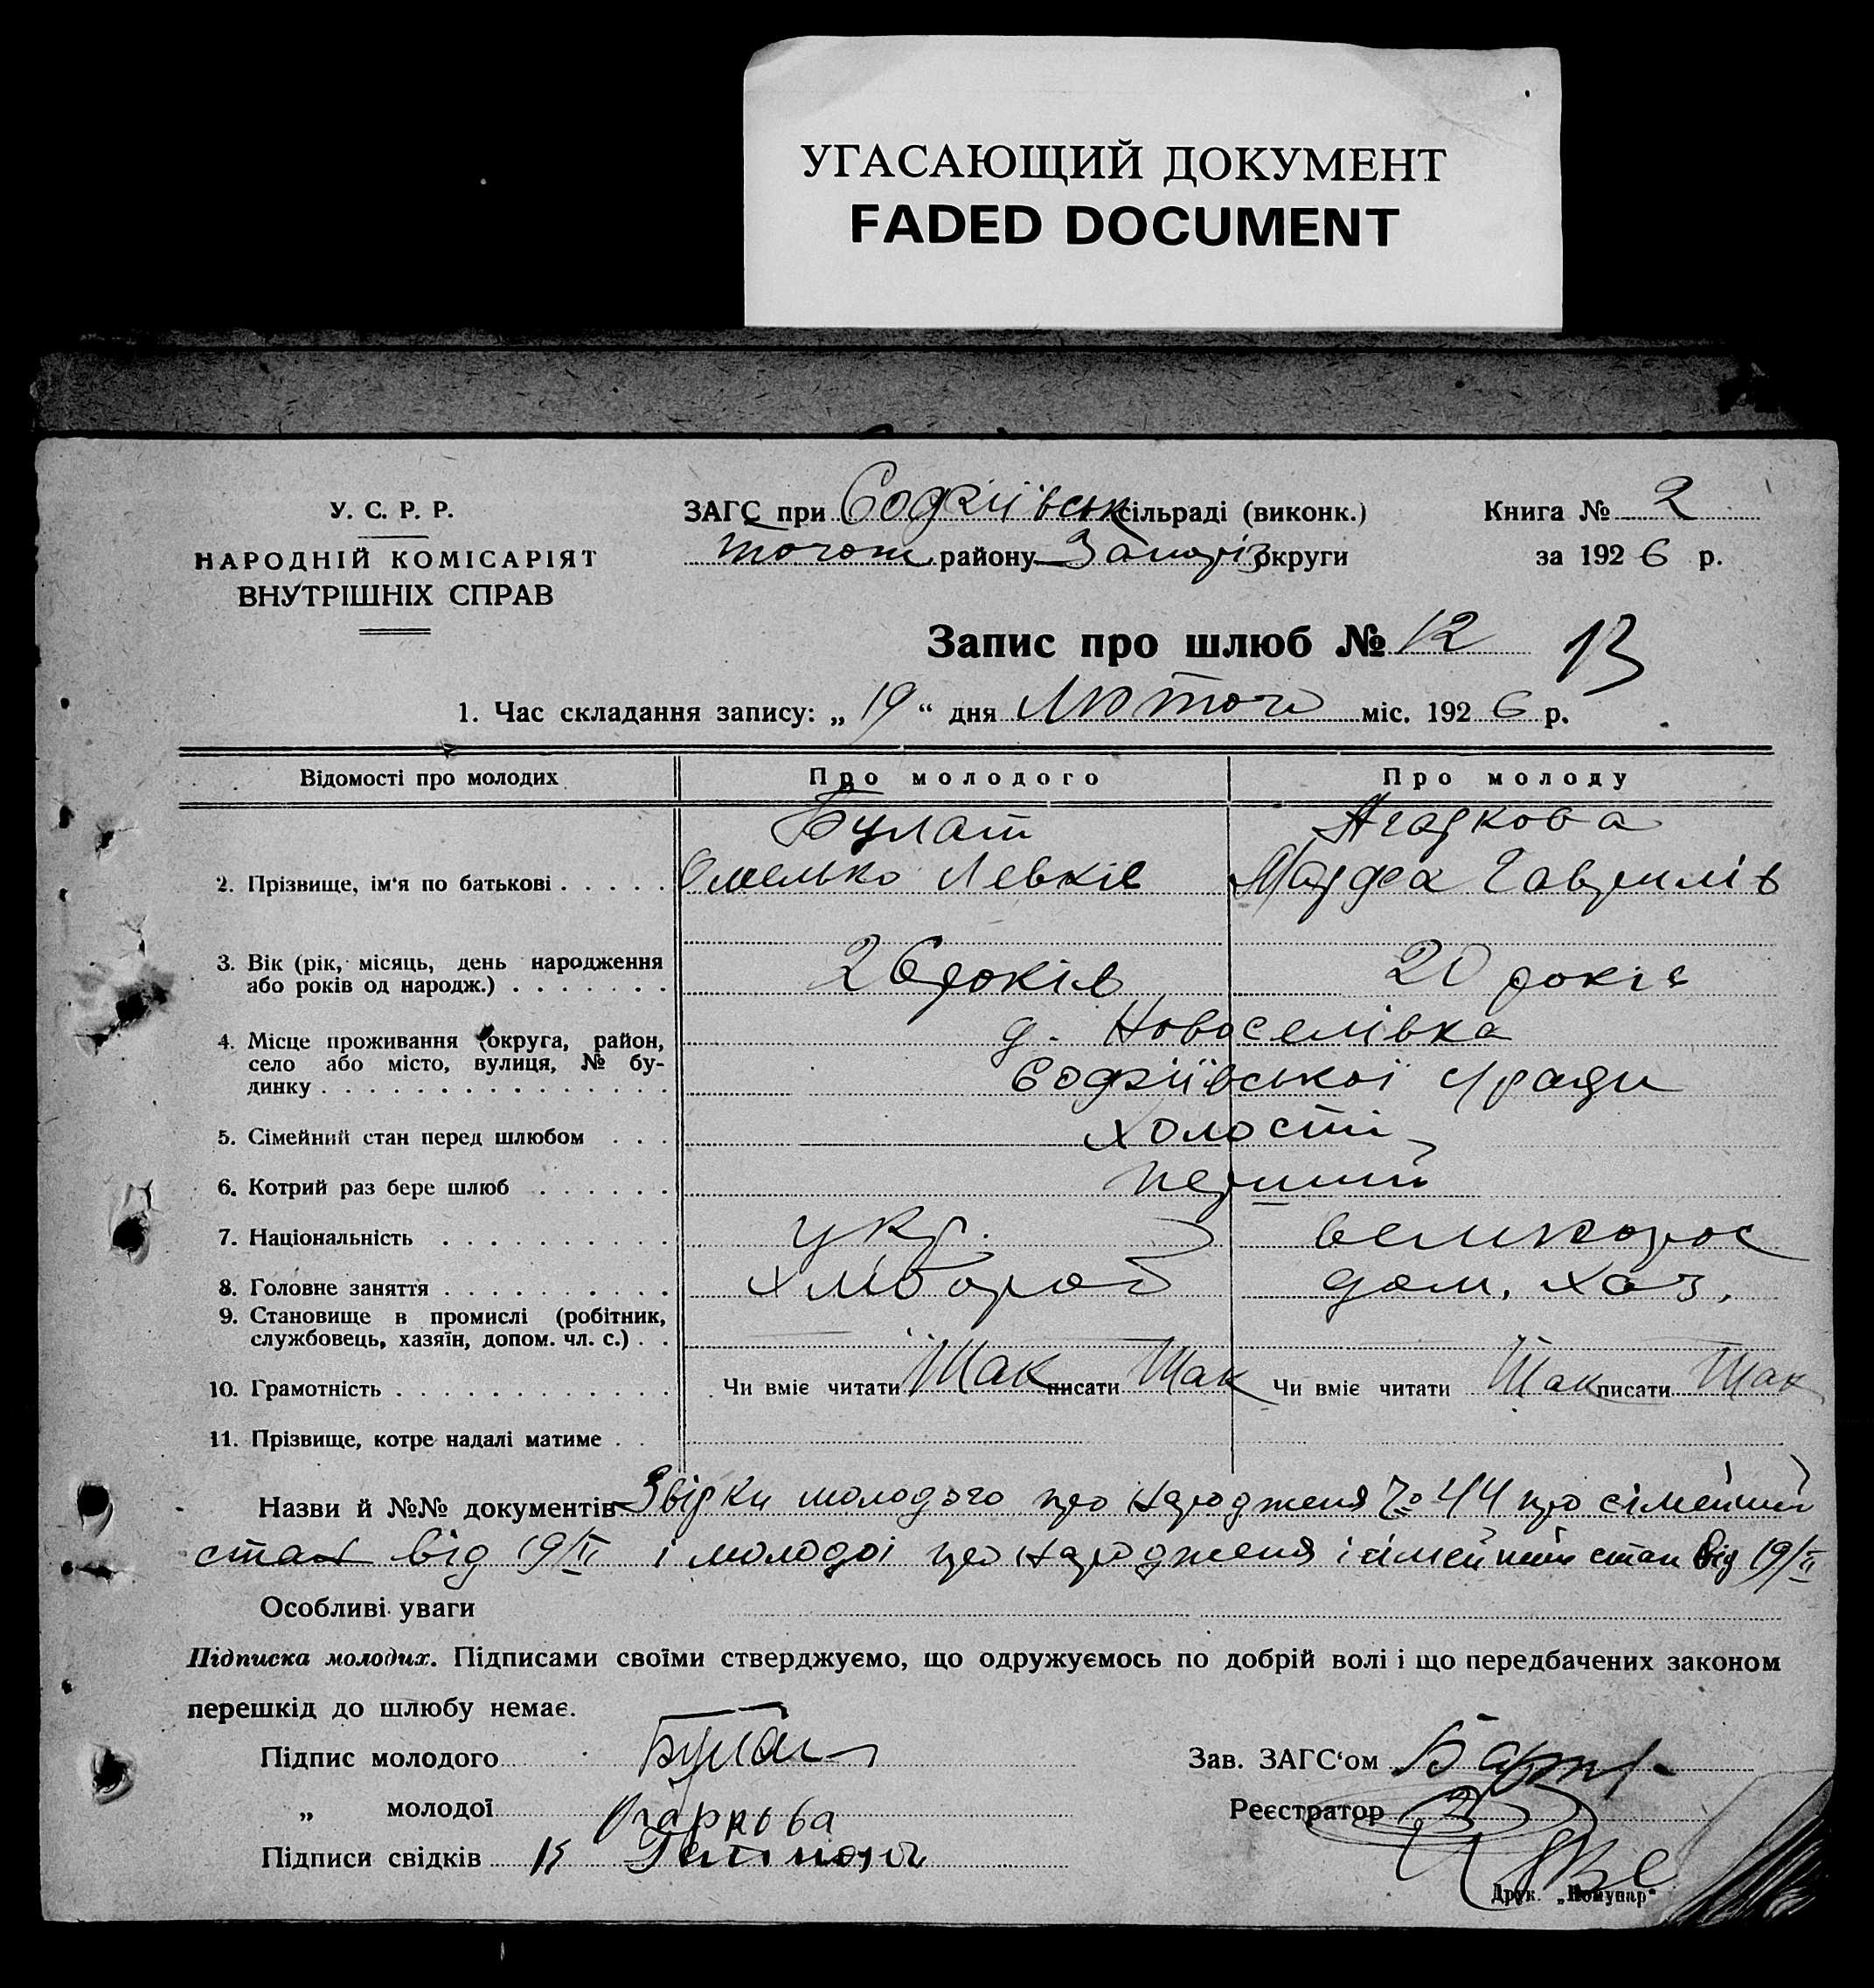 УГАСАЮЩИЙ ДОКУМЕНТ
FADED DOCUMENT
У. С. Р. Р.
НАРОДНІЙ КОМІСАРІЯТ
ВНУТРІШНІХ СПРАВ
ЗАГС при Софіївськ сільраді (виконк.)
району Запоріз округи
Книга № 2
за 1926 р.
Запис про шлюб № 12 13
1. Час складання запису: „ 19 “ дня Лютого міс. 1926 р.
Відомості про молодих
Про молодого
Про молоду
2. Прізвище, ім‘я по батькові
Булат
Омелько Левків
Агаркова
Марфа Гаврилів
3. Вік (рік, місяць, день народження
або років од народж.)
26 років
20 років
4. Місце проживання (округа, район,
село або місто, вулиця, № бу-
динку
д. Новоселівка
Софіївської с/ради
5. Сімейний стан перед шлюбом
холості
6. Котрий раз бере шлюб
перший
7. Національність
укр.
великорос
8. Головне заняття
хлібороб
дом. хаз.
9. Становище в промислі (робітник,
службовець, хазяїн, допом. чл. с.)
10. Грамотність
Чи вміє читати Так писати Так
Чи вміє читати Так писати Так
11. Прізвище, котре надалі матиме
Назви й №№ документів Звірки молодого про народженя № 44 про сімейний
стан від 19/II і молодої про народженя і сімейний стан від 19/II
Особливі уваги
Підписка молодих. Підписами своїми стверджуємо, що одружуємось по добрій волі і що передбачених законом
перешкід до шлюбу немає.
Підпис молодого Булат
„ молодої Агаркова
Підписи свідків
Зав. ЗАГС‘ом
Реєстратор
Друк. „Комунар“